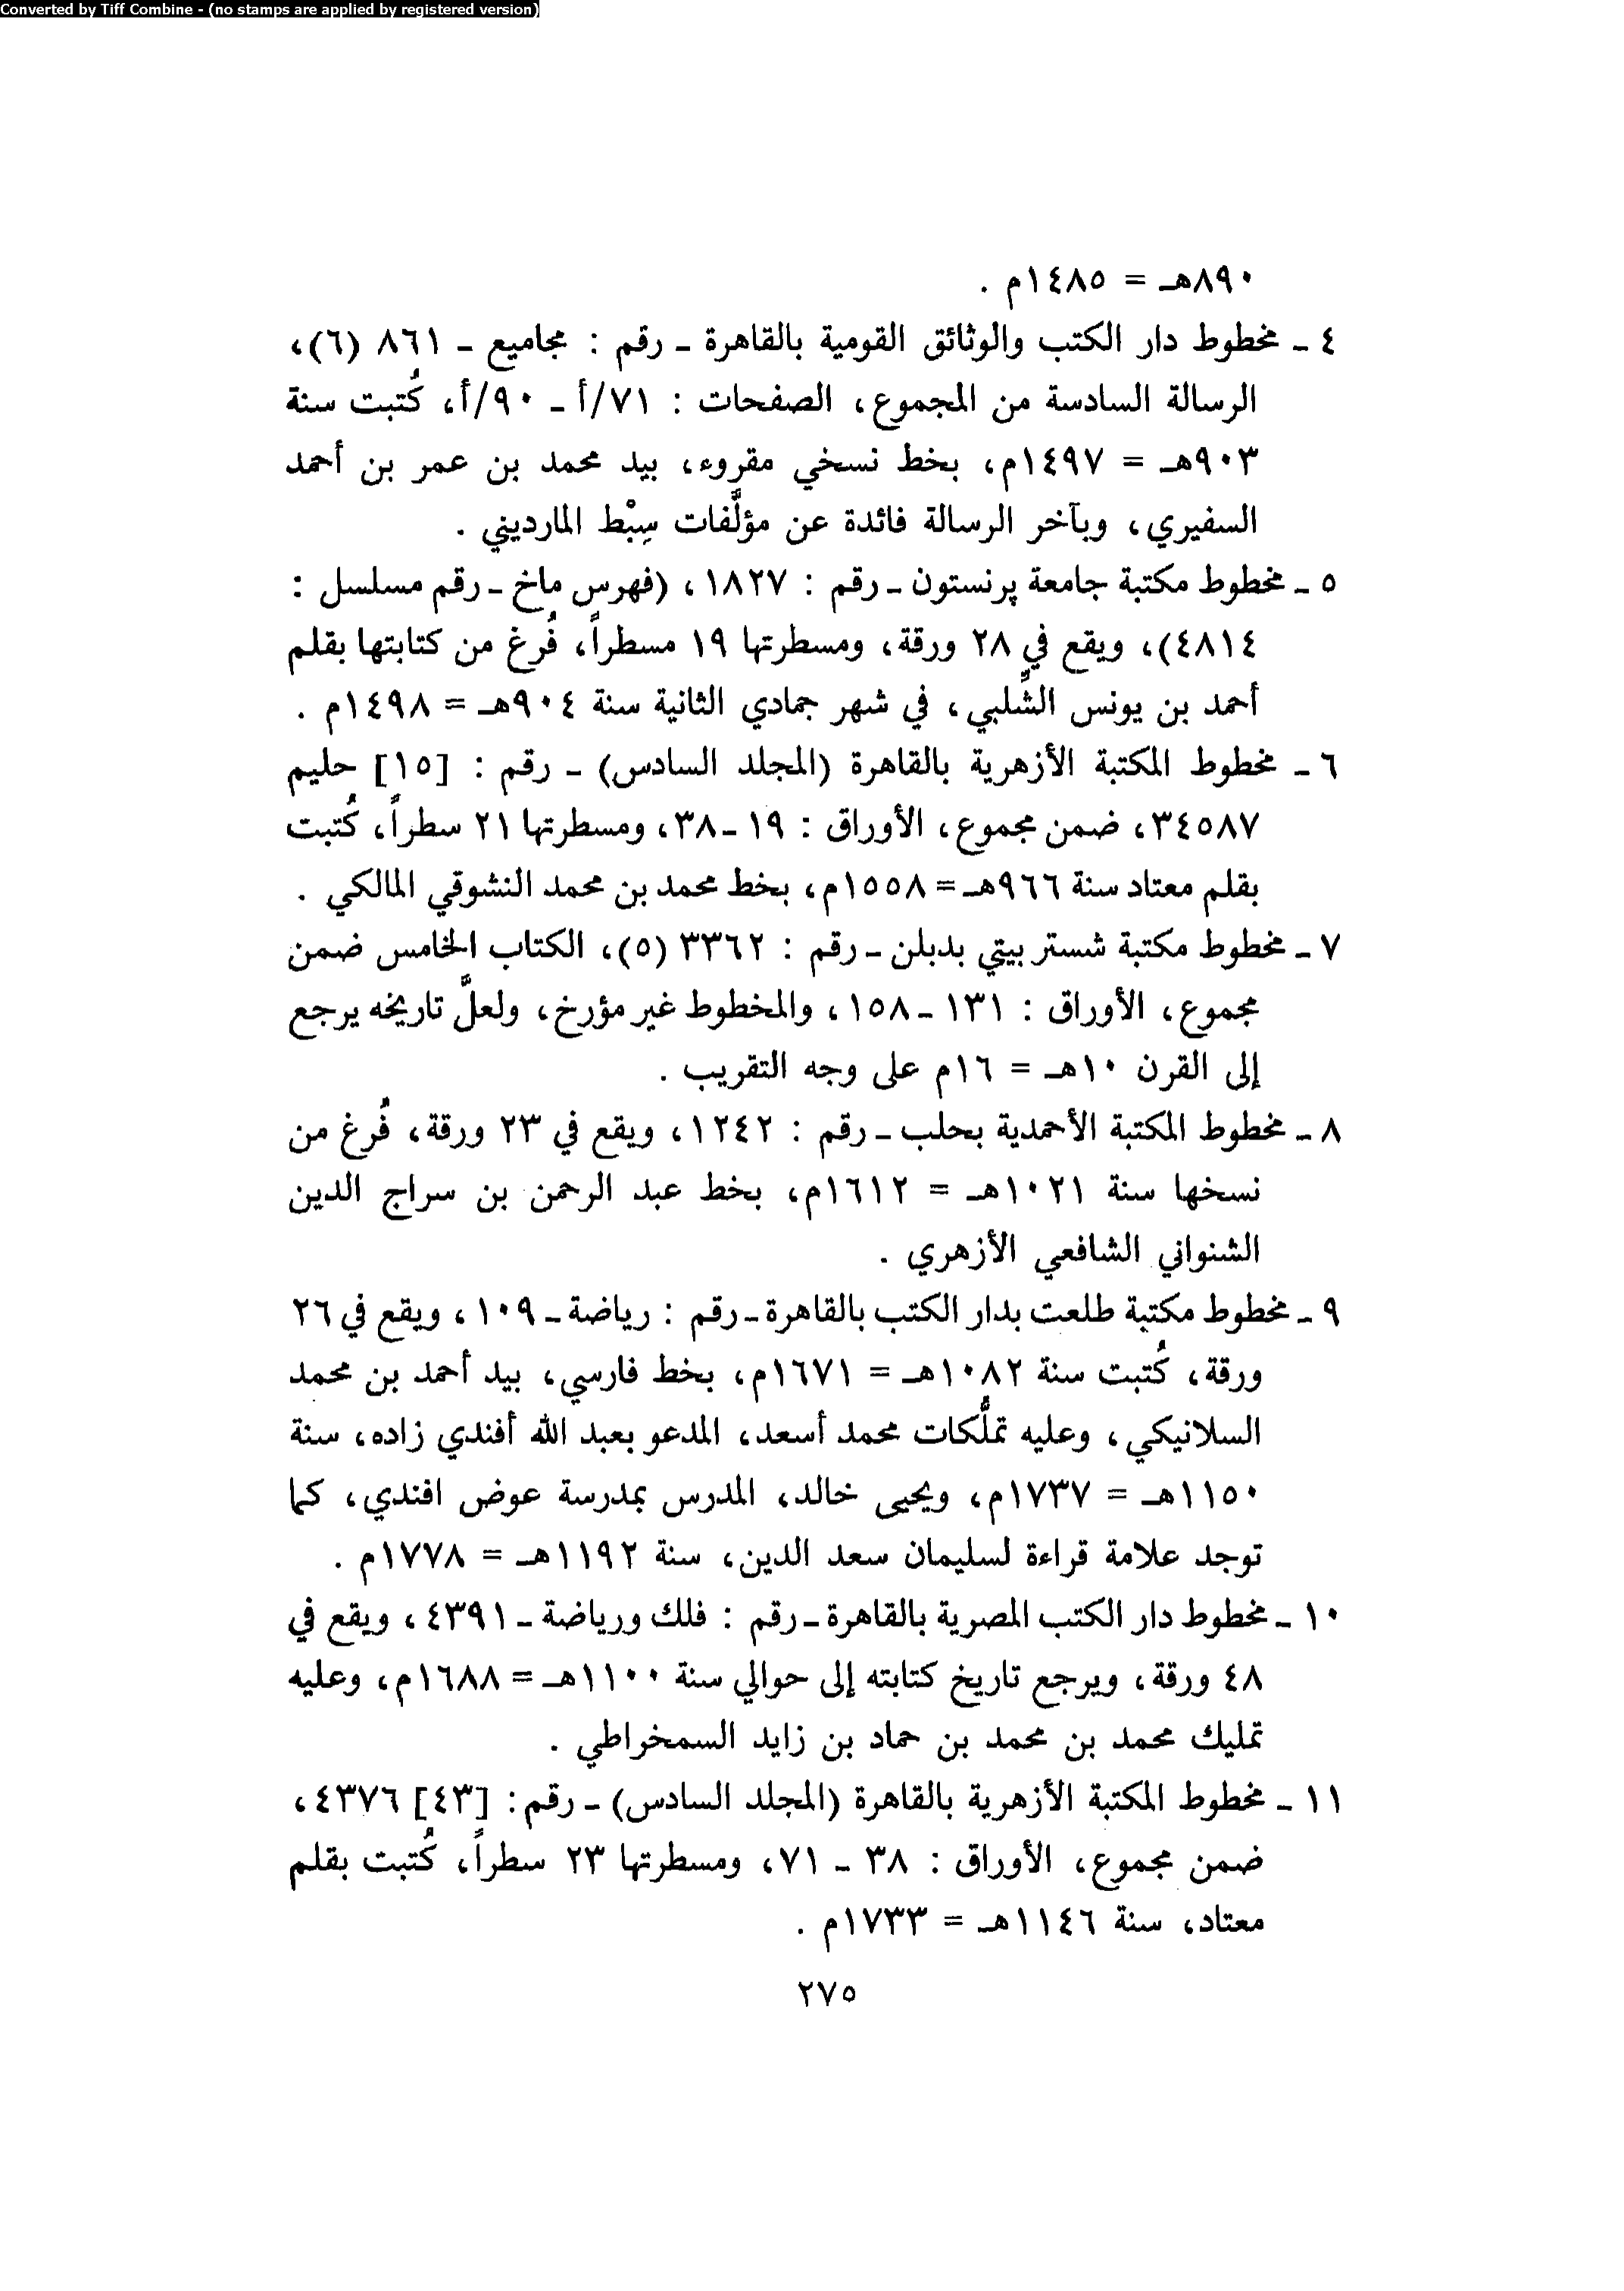 Converted by Tiff Combine - (no stamps are applied by registered version)
٨٩٠هـ = ١٤٨٥م .
٤ - مخطوط دار الكتب والوثائق القومية بالقاهرة - رقم : مجاميع - ٨٦١ (٦)،
الرسالة السادسة من المجموع، الصفحات : ٧١/أ - ٩٠/أ، كُتبت سنة
٩٠٣هـ = ١٤٩٧م، بخط نسخي مقروء، بيد محمد بن عمر بن أحمد
السفيري، وبآخر الرسالة فائدة عن مؤلَّفات سِبْط المارديني .
٥ - مخطوط مكتبة جامعة پرنستون - رقم : ١٨٢٧، (فهرس ماخ - رقم مسلسل :
٤٨١٤)، ويقع في ٢٨ ورقة، ومسطرتها ١٩ مسطراً، فُرغ من كتابتها بقلم
أحمد بن يونس الشِّلبي، في شهر جمادي الثانية سنة ٩٠٤هـ = ١٤٩٨م .
٦ - مخطوط المكتبة الأزهرية بالقاهرة (المجلد السادس) - رقم : [١٥] حليم
٣٤٥٨٧، ضمن مجموع، الأوراق : ١٩ - ٣٨، ومسطرتها ٢١ سطراً، كُتبت
بقلم معتاد سنة ٩٦٦هـ = ١٥٥٨م، بخط محمد بن محمد النشوقي المالكي .
٧ - مخطوط مكتبة شستر بيتي بدبلن - رقم : ٣٣٦٢ (٥)، الكتاب الخامس ضمن
مجموع، الأوراق : ١٣١ - ١٥٨، والمخطوط غير مؤرخ، ولعلَّ تاريخه يرجع
إلى القرن ١٠هـ = ١٦م على وجه التقريب .
٨ - مخطوط المكتبة الأحمدية بحلب - رقم : ١٢٤٢، ويقع في ٢٣ ورقة، فُرغ من
نسخها سنة ١٠٢١هـ = ١٦١٢م، بخط عبد الرحمن بن سراج الدين
الشنواني الشافعي الأزهري .
٩ - مخطوط مكتبة طلعت بدار الكتب بالقاهرة - رقم : رياضة - ١٠٩، ويقع في ٢٦
ورقة، كُتبت سنة ١٠٨٢هـ = ١٦٧١م، بخط فارسي، بيد أحمد بن محمد
السلانيكي، وعليه تملُّكات محمد أسعد، المدعو بعبد الله أفندي زاده، سنة
١١٥٠هـ = ١٧٣٧م، ويحيى خالد، المدرس بمدرسة عوض افندي، كما
توجد علامة قراءة لسليمان سعد الدين، سنة ١١٩٢هـ = ١٧٧٨م .
١٠ - مخطوط دار الكتب المصرية بالقاهرة - رقم : فلك ورياضة - ٤٣٩١، ويقع في
٤٨ ورقة، ويرجع تاريخ كتابته إلى حوالي سنة ١١٠٠هـ = ١٦٨٨م، وعليه
تمليك محمد بن محمد بن حماد بن زايد السمخراطي .
١١ - مخطوط المكتبة الأزهرية بالقاهرة (المجلد السادس) - رقم : [٤٣] ٤٣٧٦،
ضمن مجموع، الأوراق : ٣٨ - ٧١، ومسطرتها ٢٣ سطراً، كُتبت بقلم
معتاد، سنة ١١٤٦هـ = ١٧٣٣م .
٢٧٥